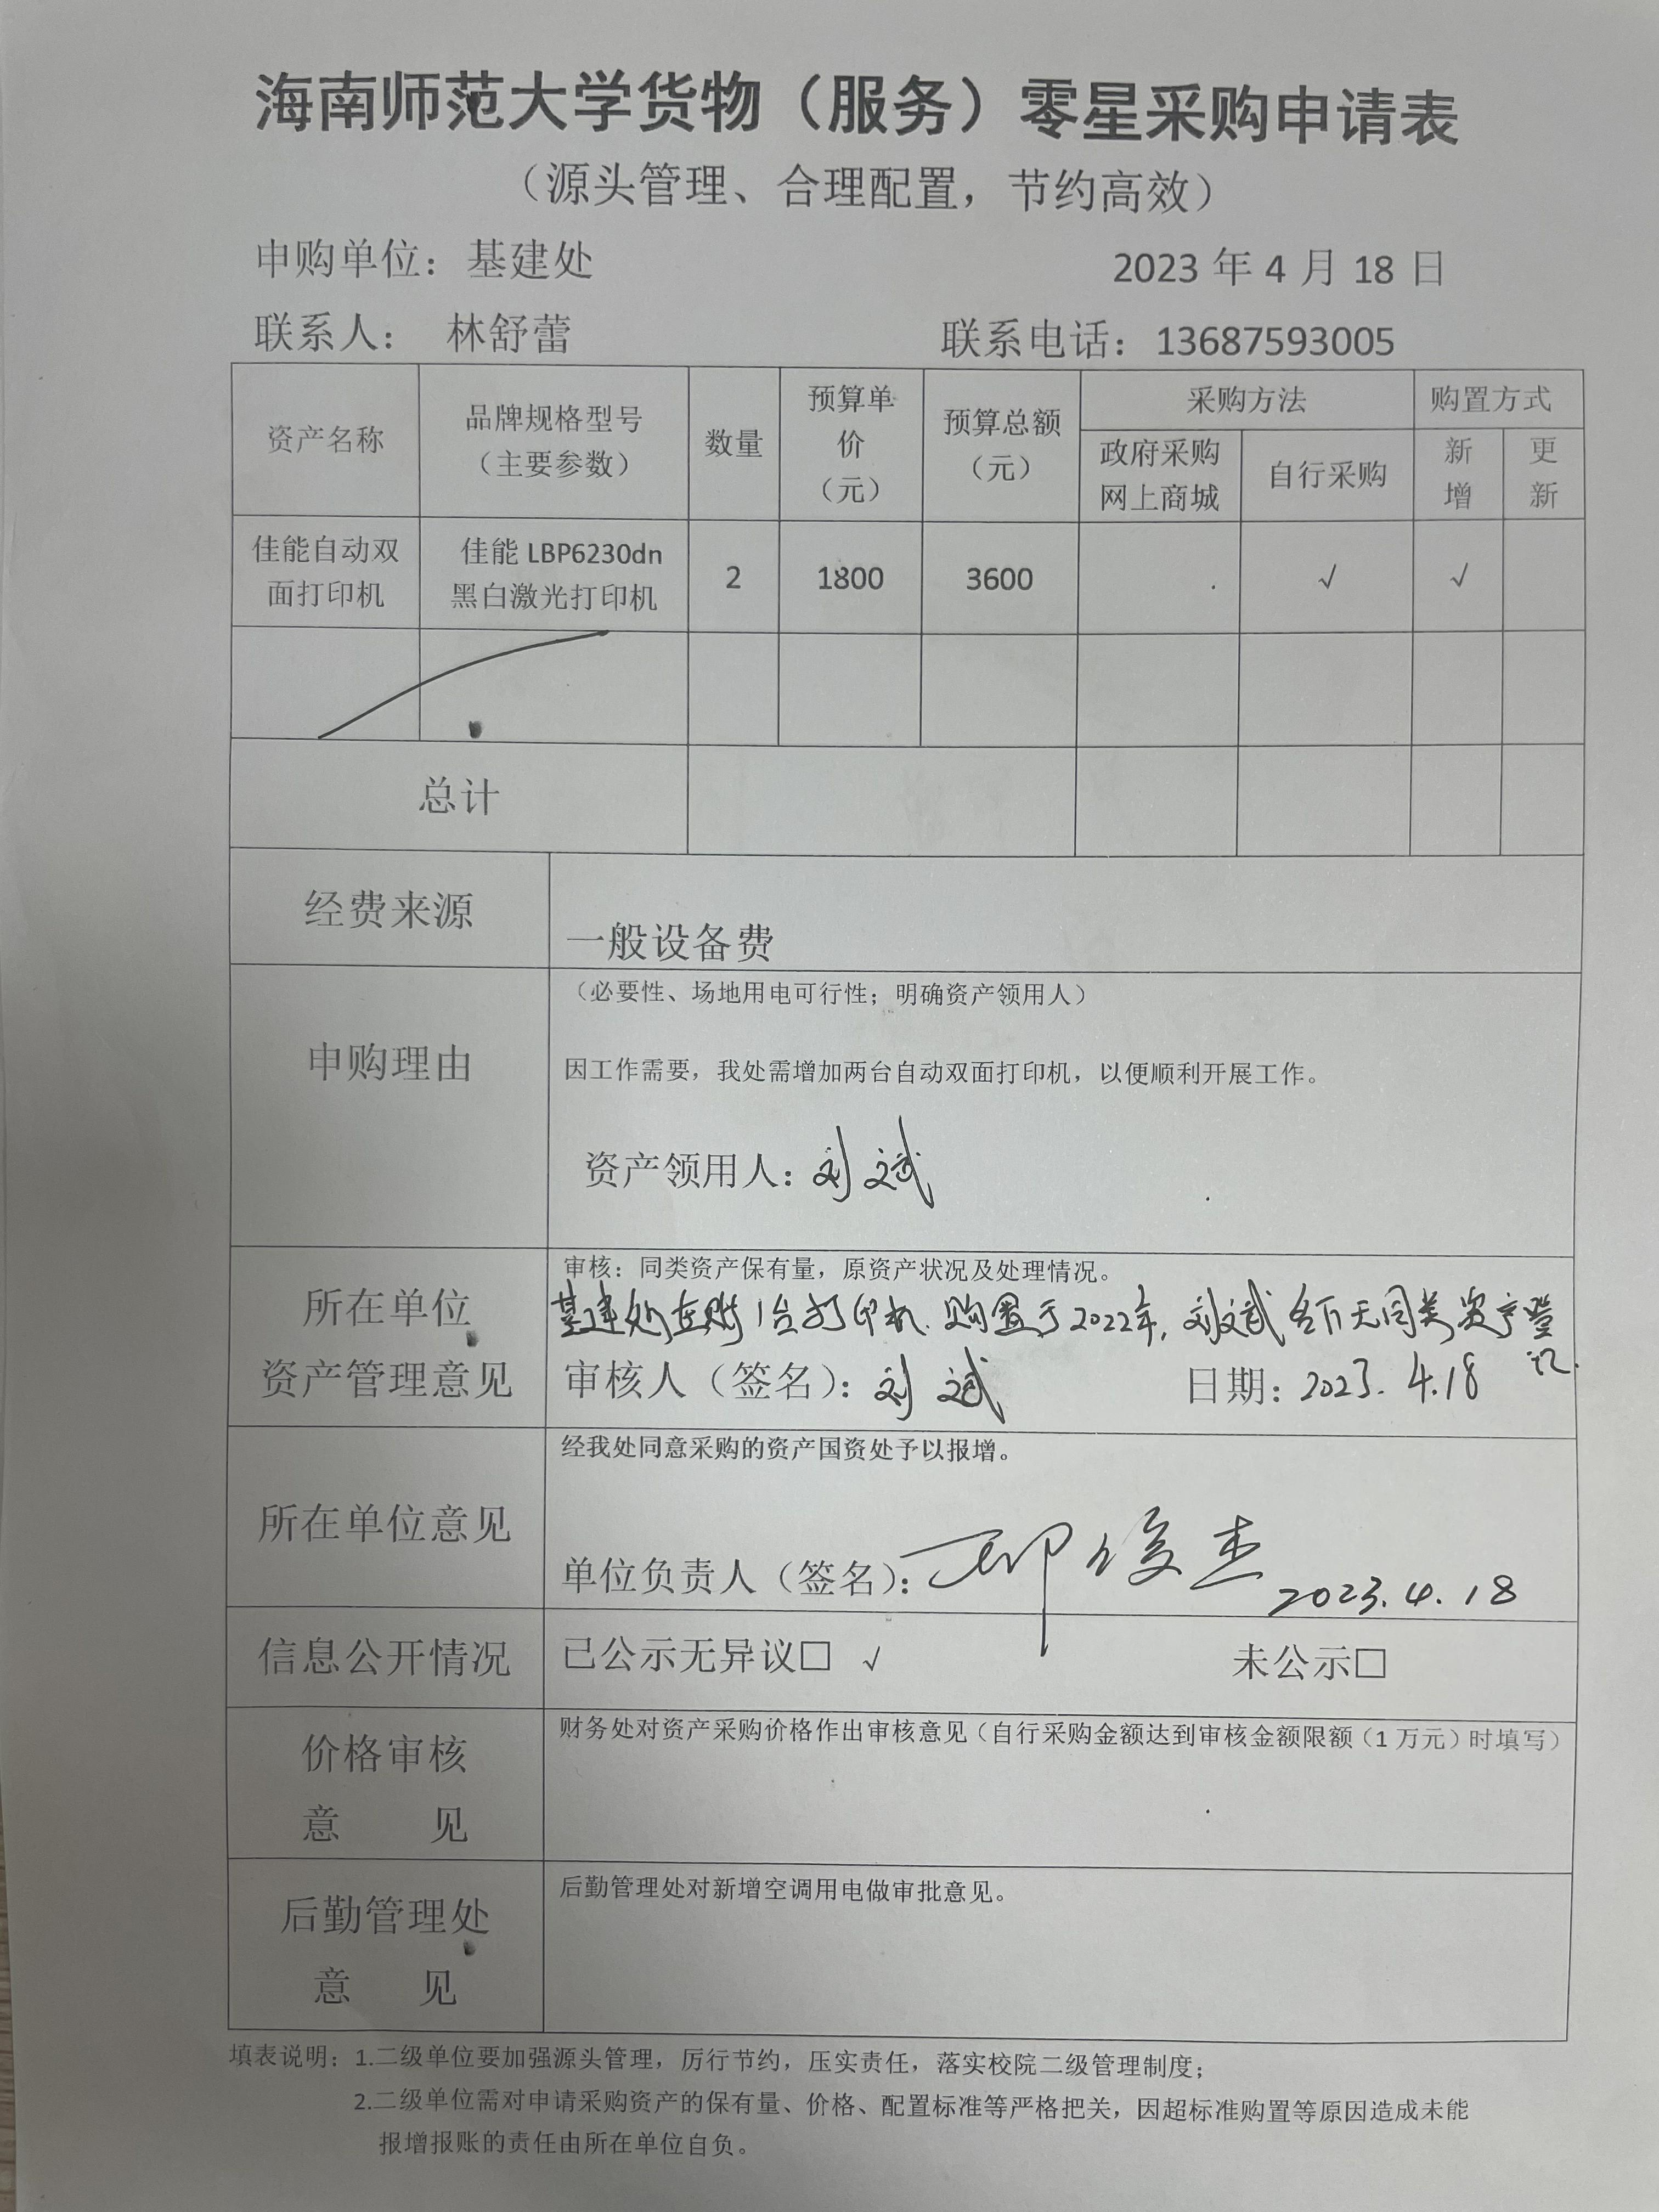 海南师范大学货物（服务）零星采购申请表
（源头管理、合理配置，节约高效）
申购单位：基建处 2023 年 4 月 18 日
联系人： 林舒蕾 联系电话：13687593005
资产名称 品牌规格型号（主要参数） 数量 预算单价（元） 预算总额（元） 采购方法 购置方式
政府采购网上商城 自行采购 新增 更新
佳能自动双面打印机 佳能 LBP6230dn 黑白激光打印机 2 1800 3600 √ √
总计
经费来源 一般设备费
（必要性、场地用电可行性；明确资产领用人）
申购理由 因工作需要，我处需增加两台自动双面打印机，以便顺利开展工作。
资产领用人：刘斌
所在单位资产管理意见
审核：同类资产保有量，原资产状况及处理情况。
基建处在账1台打印机.购置于2022年，刘斌名下无同类资产登记.
审核人（签名）：刘斌 日期：2023.4.18
经我处同意采购的资产国资处予以报增。
所在单位意见
单位负责人（签名）： 俊杰 2023.4.18
信息公开情况 已公示无异议□ √ 未公示□
价格审核意 见
财务处对资产采购价格作出审核意见（自行采购金额达到审核金额限额（1 万元）时填写）
后勤管理处意 见
后勤管理处对新增空调用电做审批意见。
填表说明：1.二级单位要加强源头管理，厉行节约，压实责任，落实校院二级管理制度；
2.二级单位需对申请采购资产的保有量、价格、配置标准等严格把关，因超标准购置等原因造成未能
报增报账的责任由所在单位自负。